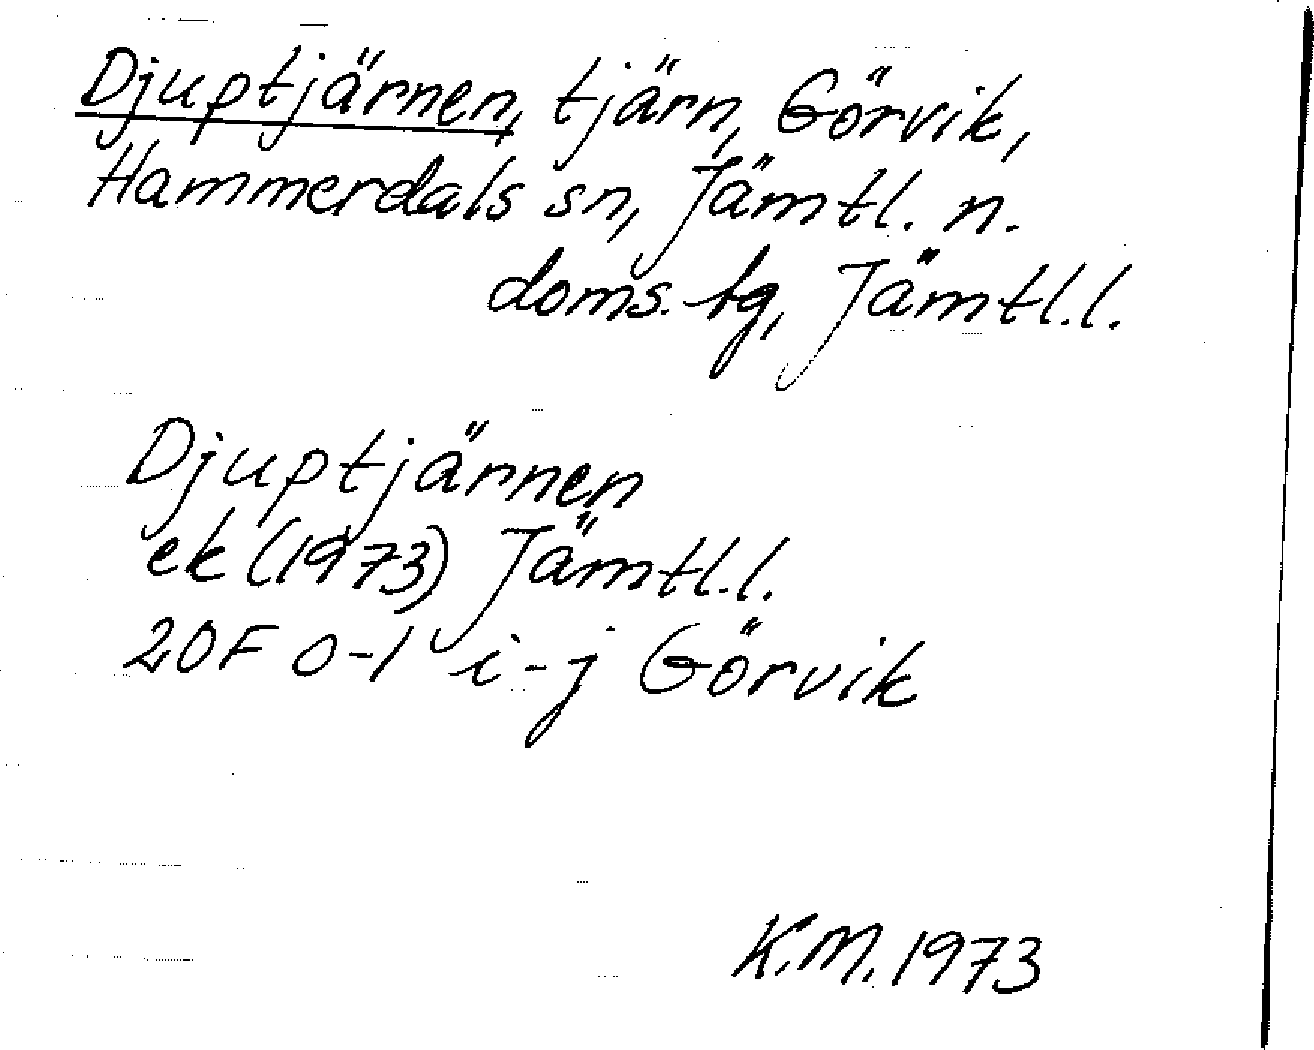 Djuptjärnen, tjärn, Görvik,
Hammerdals sn, Jämtl. n.
doms. tg, Jämtl. l.
Djuptjärnen
ek (1973) Jämtl. l.
20F 0-1 i-j Görvik
K.M. 1973